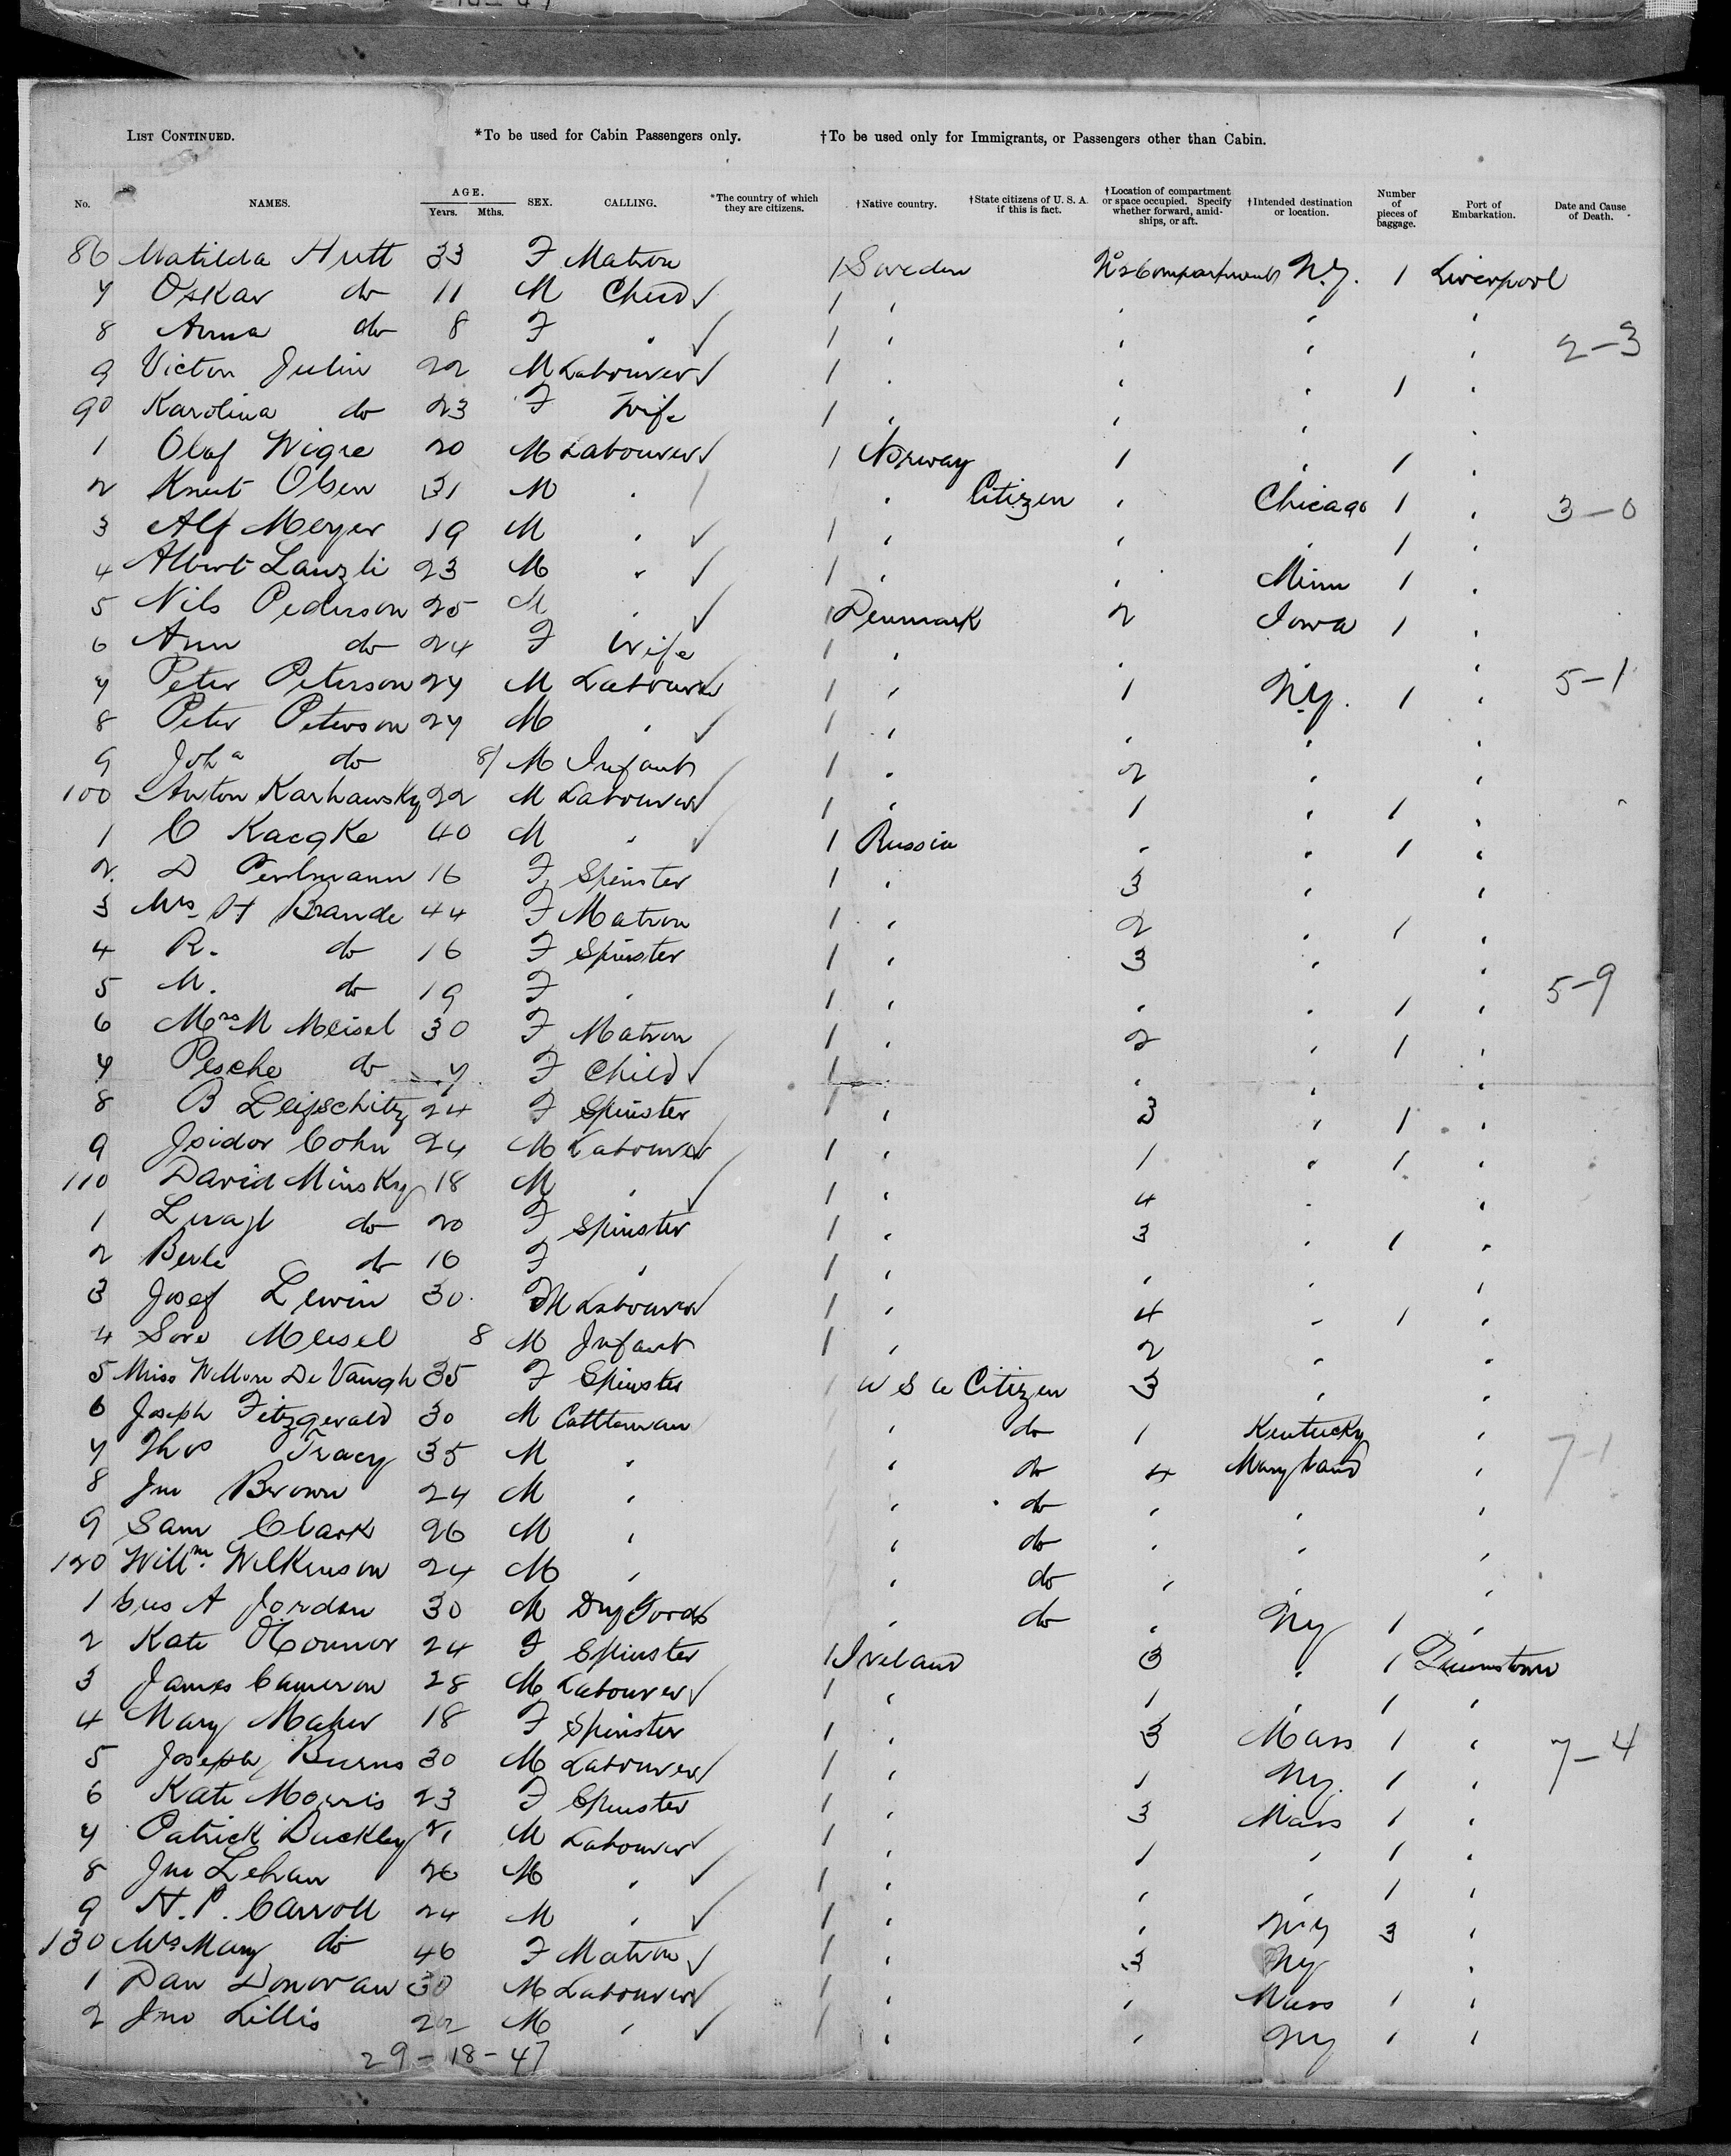 LIST CONTINUED. *To be used for Cabin Passengers only. †To be used only for Immigrants, or Passengers other than Cabin.
No. NAMES. AGE. Years. Mths. SEX. CALLING. *The country of which they are citizens. †Native country. †State citizens of U. S. A. if this is fact. †Location of compartment or space occupied. Specify whether forward, amidships, or aft. †Intended destination or location. Number of pieces of baggage. Port of Embarkation. Date and Cause of Death.
86 Matilda Hutt 33 F Matron 1 Sweden No 2 Compartment N.Y. 1 Liverpool
7 Oskar do 11 M Child ✓ 1 " " " "
8 Anna do 8 F " ✓ 1 " " " " 2-3
9 Victor Julin 22 M Labourer ✓ 1 " " " 1 "
90 Karolina do 23 F Wife 1 " " " "
1 Olaf Wigre 20 M Labourer ✓ 1 Norway 1 " 1 "
2 Knut Olsen 31 M " / " Citizen " Chicago 1 " 3-0
3 Alf Meyer 19 M " ✓ 1 " " " 1 "
4 Albert Lanzli 23 M " ✓ 1 " " Minn 1 "
5 Nils Pederson 25 M " ✓ 1 Denmark 2 Iowa 1 "
6 Ann do 24 F Wife 1 " " " "
7 Peter Peterson 27 M Labourer 1 " 1 N.Y. 1 " 5-1
8 Peter Peterson 27 M " ✓ 1 " " " "
9 Joha do 8/ M Infant 1 " 2 " "
100 Anton Karhawsky 22 M Labourer ✓ 1 " 1 " 1 "
1 C 40 M " ✓ 1 Russia " " 1 "
2 D Perlmann 16 F Spinster 1 " 3 " "
3 Mrs H Brande 44 F Matron 1 " 2 " 1 "
4 R. do 16 F Spinster 1 " 3 " "
5 M. do 19 F " 1 " " " 1 " 5-9
6 Mrs M Meisel 30 F Matron 1 " 2 " 1 "
7 Pesche do 7 F Child ✓ 1 " " " "
8 B Leifschitz 24 F Spinster 1 " 3 " 1 "
9 Isidor Cohn 24 M Labourer 1 " 1 " 1 "
110 David Minsky 18 M " ✓ 1 " 4 " "
1 do 20 F Spinster 1 " 3 " 1 "
2 Berle do 16 F " 1 " " " "
3 Josef Lewin 30 M Labourer ✓ 1 " 4 " 1 "
4 Sore Meisel 8 M Infant 1 " 2 " "
5 Miss De Vaugh 35 F Spinster 1 U S A Citizen 3 " "
6 Joseph Fitzgerald 30 M Cattleman " do 1 Kentucky "
7 Thos Tracy 35 M " " do 4 Maryland " 7-1
8 Jno Brown 24 M " " do " " "
9 Sam Clark 26 M " " do " "
120 Willm Wilkinson 24 M " " do " " "
1 Gus A Jordan 30 M Dry Goods " do " NY 1 "
2 Kate O'Connor 24 F Spinster 1 Ireland 3 " 1 Queenstown
3 James Cameron 28 M Labourer ✓ 1 " 1 " 1 "
4 Mary Maher 18 F Spinster 1 " 3 Mass 1 "
5 Joseph Burns 30 M Labourer ✓ 1 " 1 NY. 1 " 7-4
6 Kate Morris 23 F Spinster 1 " 3 Mass 1 "
7 Patrick Buckley 21 M Labourer ✓ 1 " 1 " 1 "
8 Jno Lehan 26 M " ✓ 1 " " " 1 "
9 H. P. Carroll 24 M " ✓ 1 " " NY 3 "
130 Mrs Mary do 46 F Matron ✓ 1 " 3 NY "
1 Dan Donovan 30 M Labourer ✓ 1 " " Mass 1 "
2 Jno Lillis 22 M " ✓ 1 " " NY 1 "
29-18-47